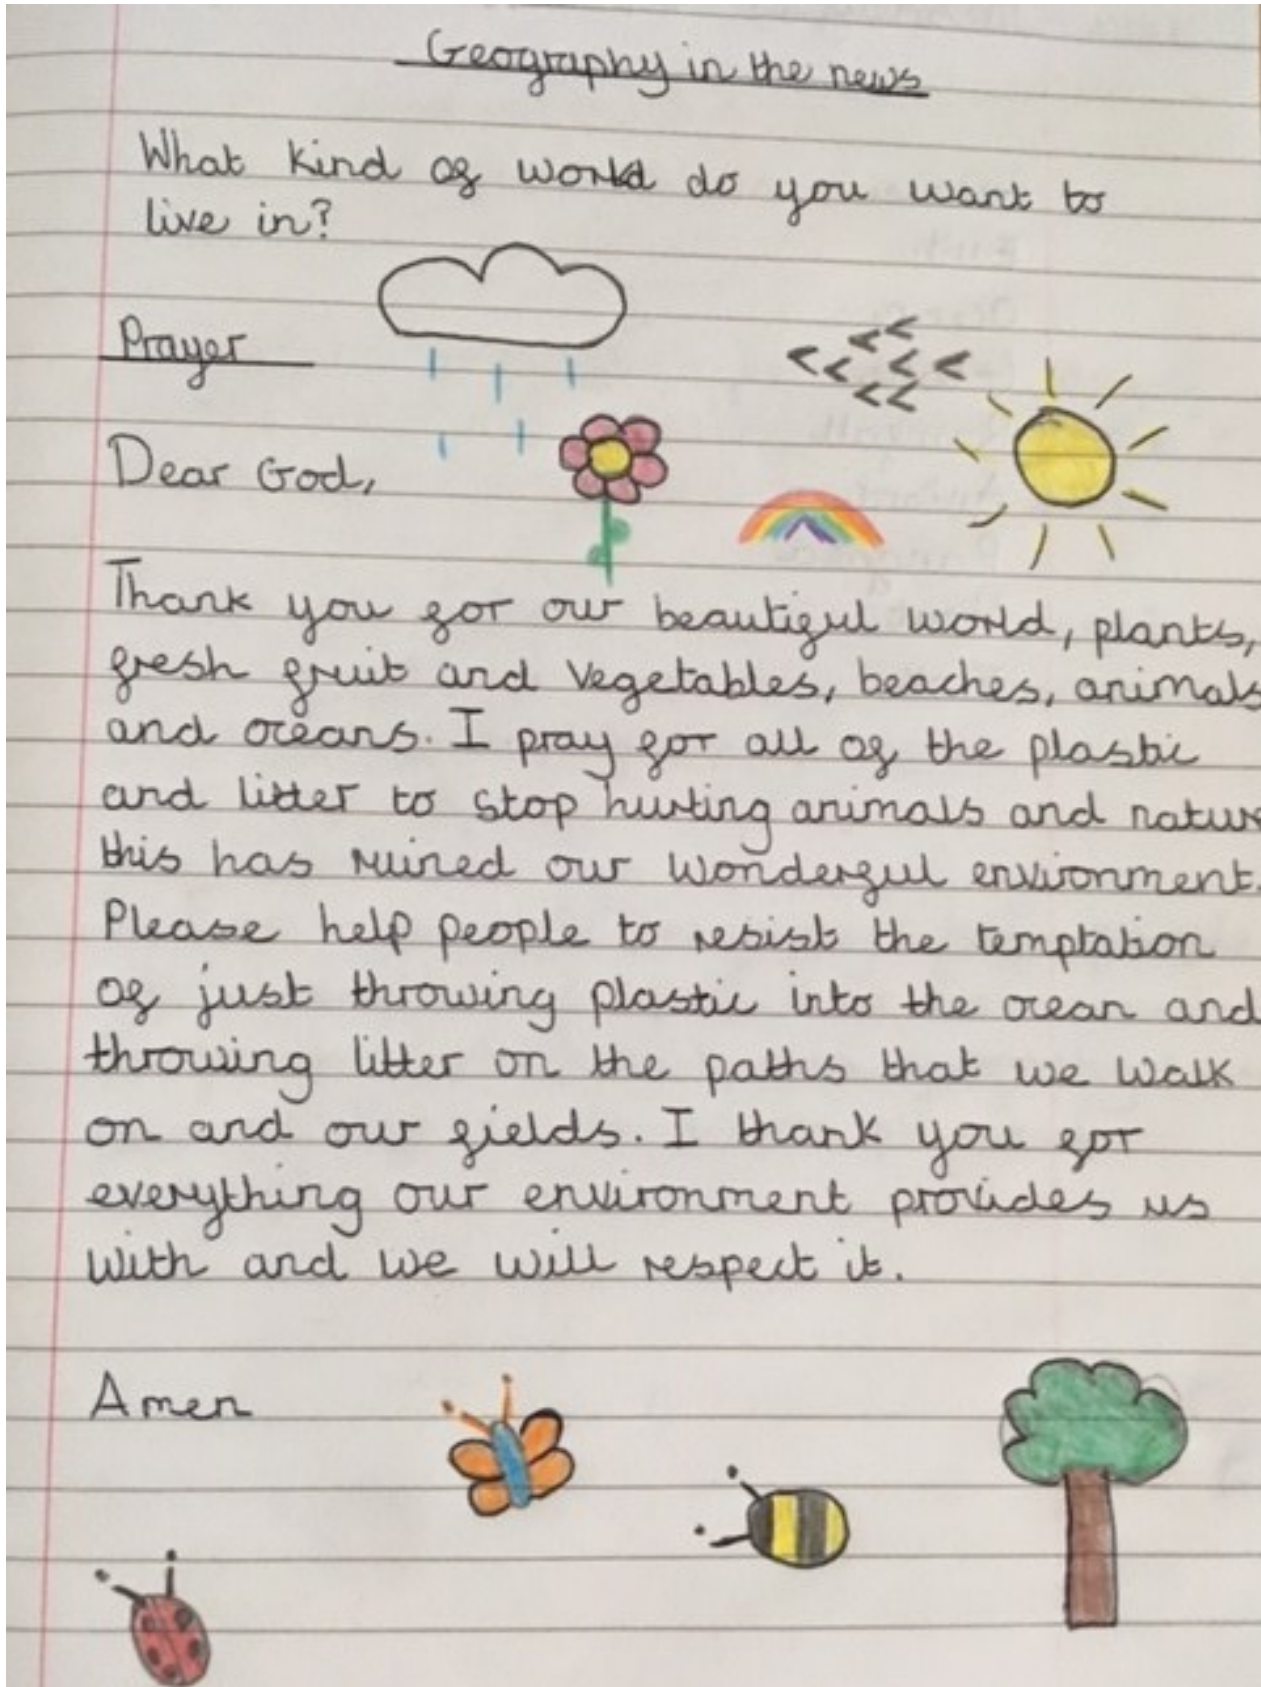 Geography in the news
What kind of world do you want to
live in?
Prayer
Dear God,
Thank you for our beautiful world, plants,
fresh fruit and vegetables, beaches, animals
and oceans. I pray for all of the plastic
and litter to stop hurting animals and natur
this has ruined our wonderful environment.
Please help people to resist the temptation
of just throwing plastic into the ocean and
throwing litter on the paths that we walk
on and our fields. I thank you for
everything our environment provides us
with and we will respect it.
Amen